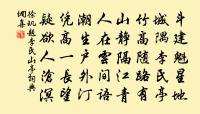 斗建魁星地
城隅李氏亭
竹高隨路有
山靜隔江青
人在雲間語
潮生户外汀
凭高一長望
疑欲入滄溟
徐璣題李氏山亭詞典
網集